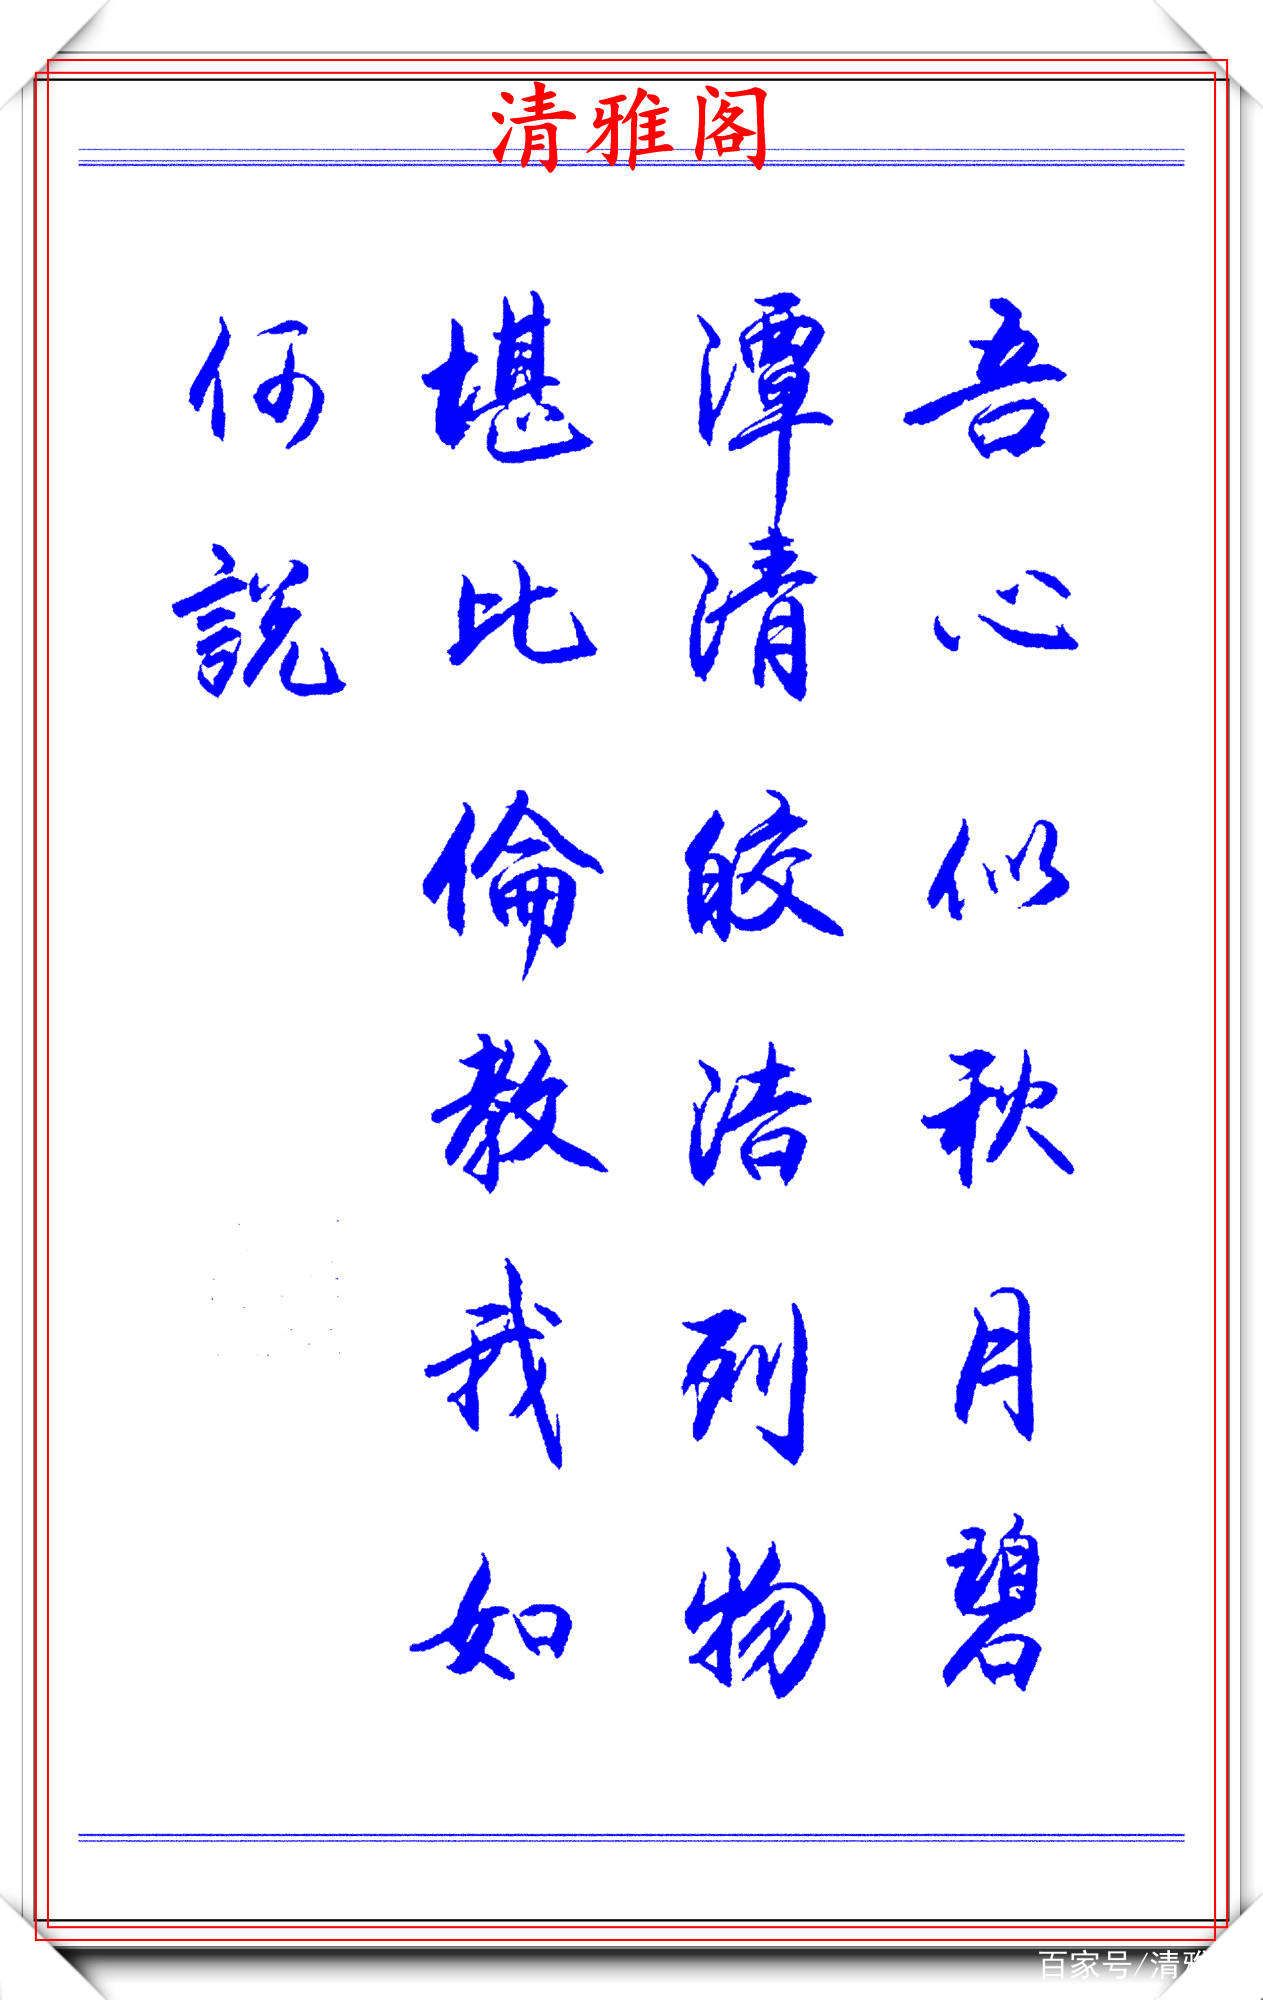 清雅阁
吾心似秋月碧
潭清皎洁列物
堪比倫教我如
何説
百家号/清雅